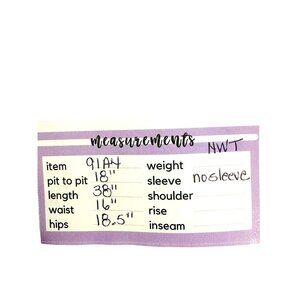 measurements
NWT
item 91A4 weight
pit to pit 18" sleeve no sleeve
length 38" shoulder
waist 16" rise
hips 18.5" inseam